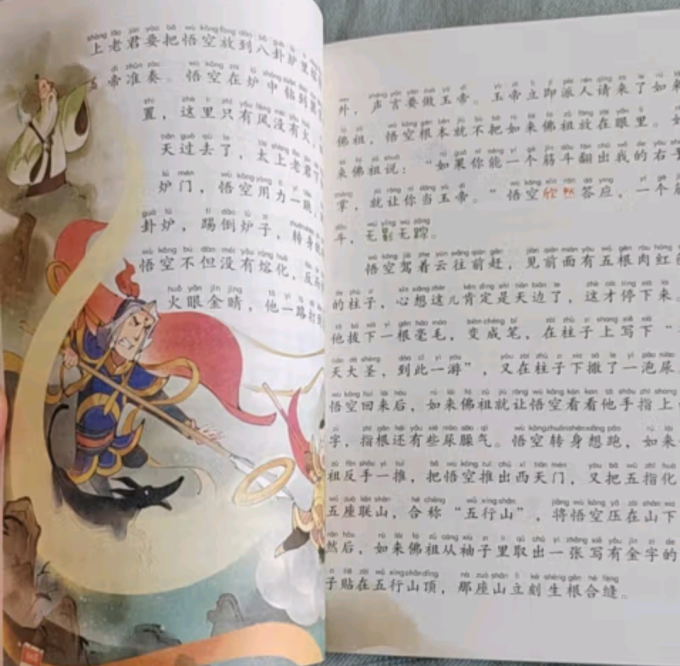 上老君要把悟空放到八卦炉里
帝准奏。悟空在炉中钻到
置，这里只有风没有火，
天过去了，太上老君
炉门，悟空用力一跳，
卦炉，踢倒炉子，转身
悟空不但没有熔化，反而
火眼金睛，他一路打到
外，声言要做玉帝。玉帝立即派人请来了如来
佛祖，悟空根本就不把如来佛祖放在眼里。如
来佛祖说：“如果你能一个筋斗翻出我的右手
掌，就让你当玉帝。”悟空欣然答应，一个筋
斗，无影无踪。
悟空驾着云往前赶，见前面有五根肉红色
的柱子，心想这儿肯定是天边了，这才停下来。
他拔下一根毫毛，变成笔，在柱子上写下“
天大圣，到此一游”，又在柱子下撒了一泡尿。
悟空回来后，如来佛祖就让悟空看看他手指上
字，指根还有些尿臊气。悟空转身想跑，如来
祖反手一推，把悟空推出西天门，又把五指化
五座联山，合称“五行山”，将悟空压在山下
然后，如来佛祖从袖子里取出一张写有金字的
子贴在五行山顶，那座山立刻生根合缝。